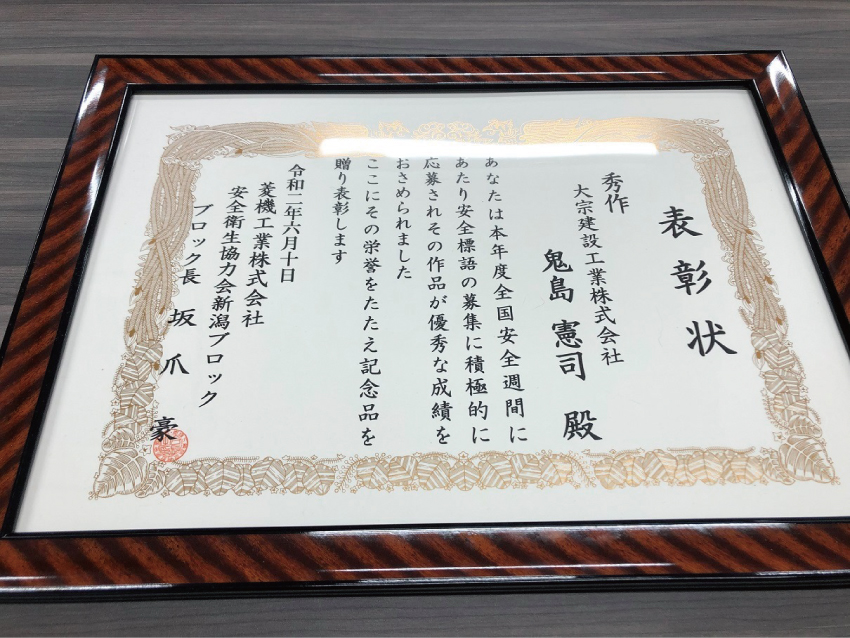 表彰状
秀作
大宗建設工業株式会社
鬼島 憲司 殿
あなたは本年度全国安全週間に
あたり安全標語の募集に積極的に
応募されその作品が優秀な成績を
おさめられました
ここにその栄誉をたたえ記念品を
贈り表彰します
令和二年六月十日
菱機工業株式会社
安全衛生協力会新潟ブロック
ブロック長 坂爪 豪